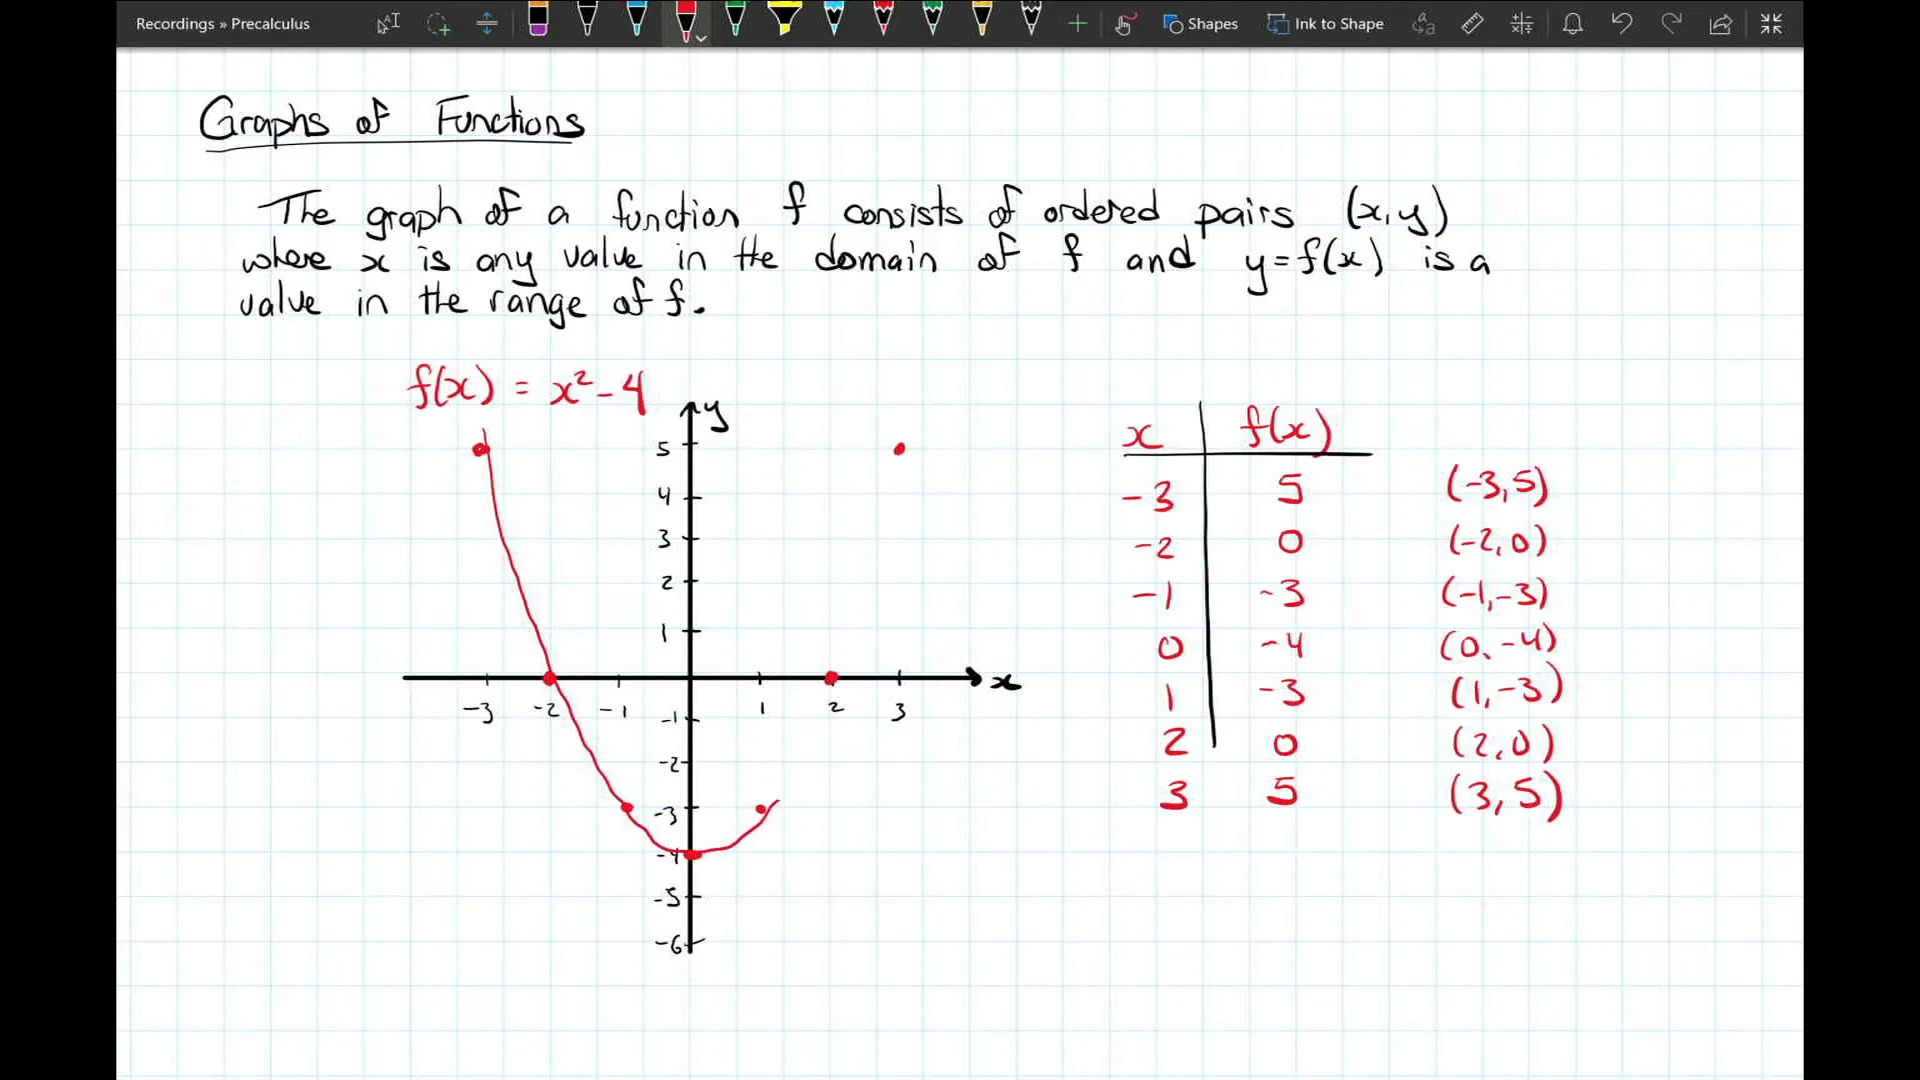 Recordings » Precalculus
Shapes
Ink to Shape
Graphs of Functions
The graph of a function f consists of ordered pairs (x,y)
where x is any value in the domain of f and y=f(x) is a
value in the range of f.
f(x) = x²-4
y
5
4
3
2
1
x
-3 -2 -1 1 2 3
-1
-2
-3
-4
-5
-6
x f(x)
-3 5 (-3,5)
-2 0 (-2,0)
-1 -3 (-1,-3)
0 -4 (0,-4)
1 -3 (1,-3)
2 0 (2,0)
3 5 (3,5)